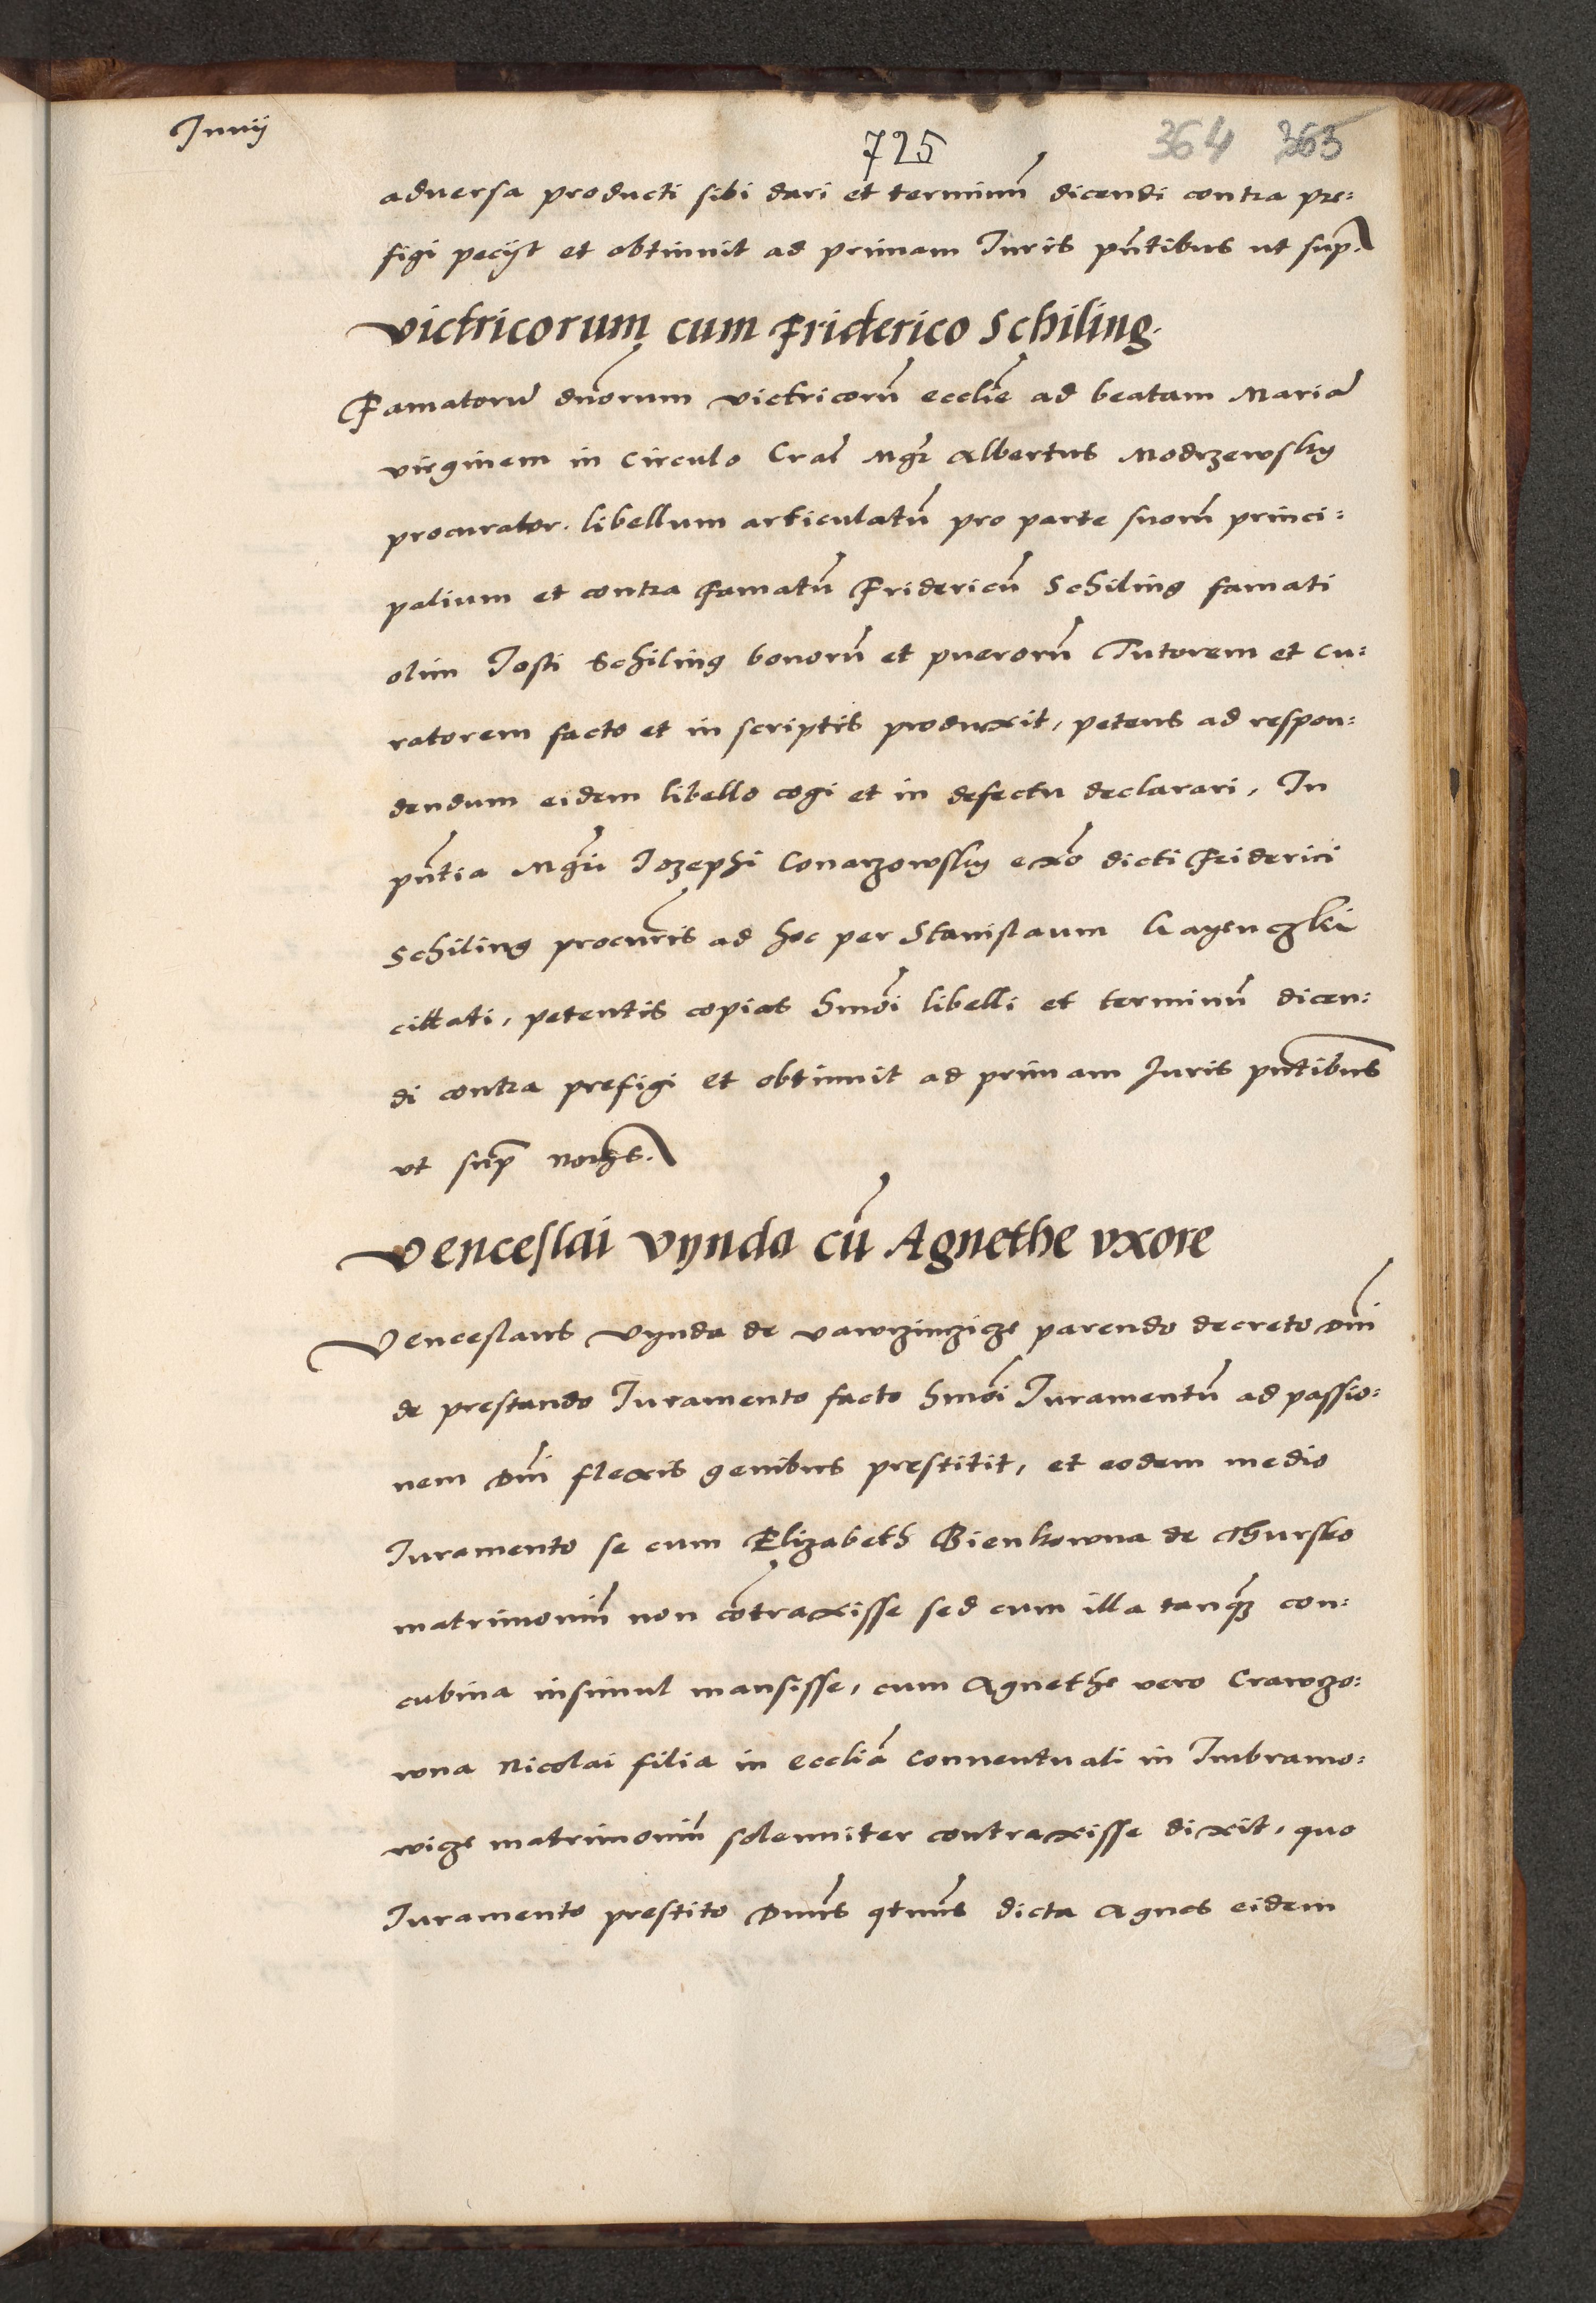 Junij
725 364 365
adversa producti sibi dari et terminũ dicendi contra pre:
figi pecijt et obtinuit ad primam Juris pñtibus ut sup.
Victricorum cum Friderico Schiling.
Famatorũ dñorum victricorũ ecclie ad beatam Mariã
virginem in Circulo Cral Mgr Albertus Modrzewsky
procurator. libellum articulatũ pro parte suorũ princi:
palium et contra famatũ Fridericũ Schiling famati
olim Josti Schiling bonorũ et puerorũ Tutorem et cu:
ratorem facto et in scriptis produxit, petens ad respon:
dendum eidem libello cogi et in defectu declarari, In
pñtia Mgri Jozephi Conarzowsky exõ dicti Friderici
Schiling procuris ad hoc per Stanislaum
cittati, petentis copias hmõi libelli et terminũ dicen:
di contra prefigi et obtinuit ad primam Juris pñtibus
ut sup
Venceslai Vynda cũ Agnethe vxore
Venceslaus Vynda de parendo decreto dñi
de prestando Juramento facto hmõi Juramentũ ad passio:
nem dñi flexis genibus prestitit, et eodem medio
Juramento se cum Elizabeth Bienkowna de Thursko
matrimoniũ non cõtraxisse sed cum illa tanqz con:
cubina insimul mansisse, cum Agnethe vero Crawczo:
wna Nicolai filia in ecclia Conventuali in Imbramo:
wicze matrimoniũ solenniter contraxisse dixit, quo
Juramento prestito Dnus qtnus dicta Agnes eidem